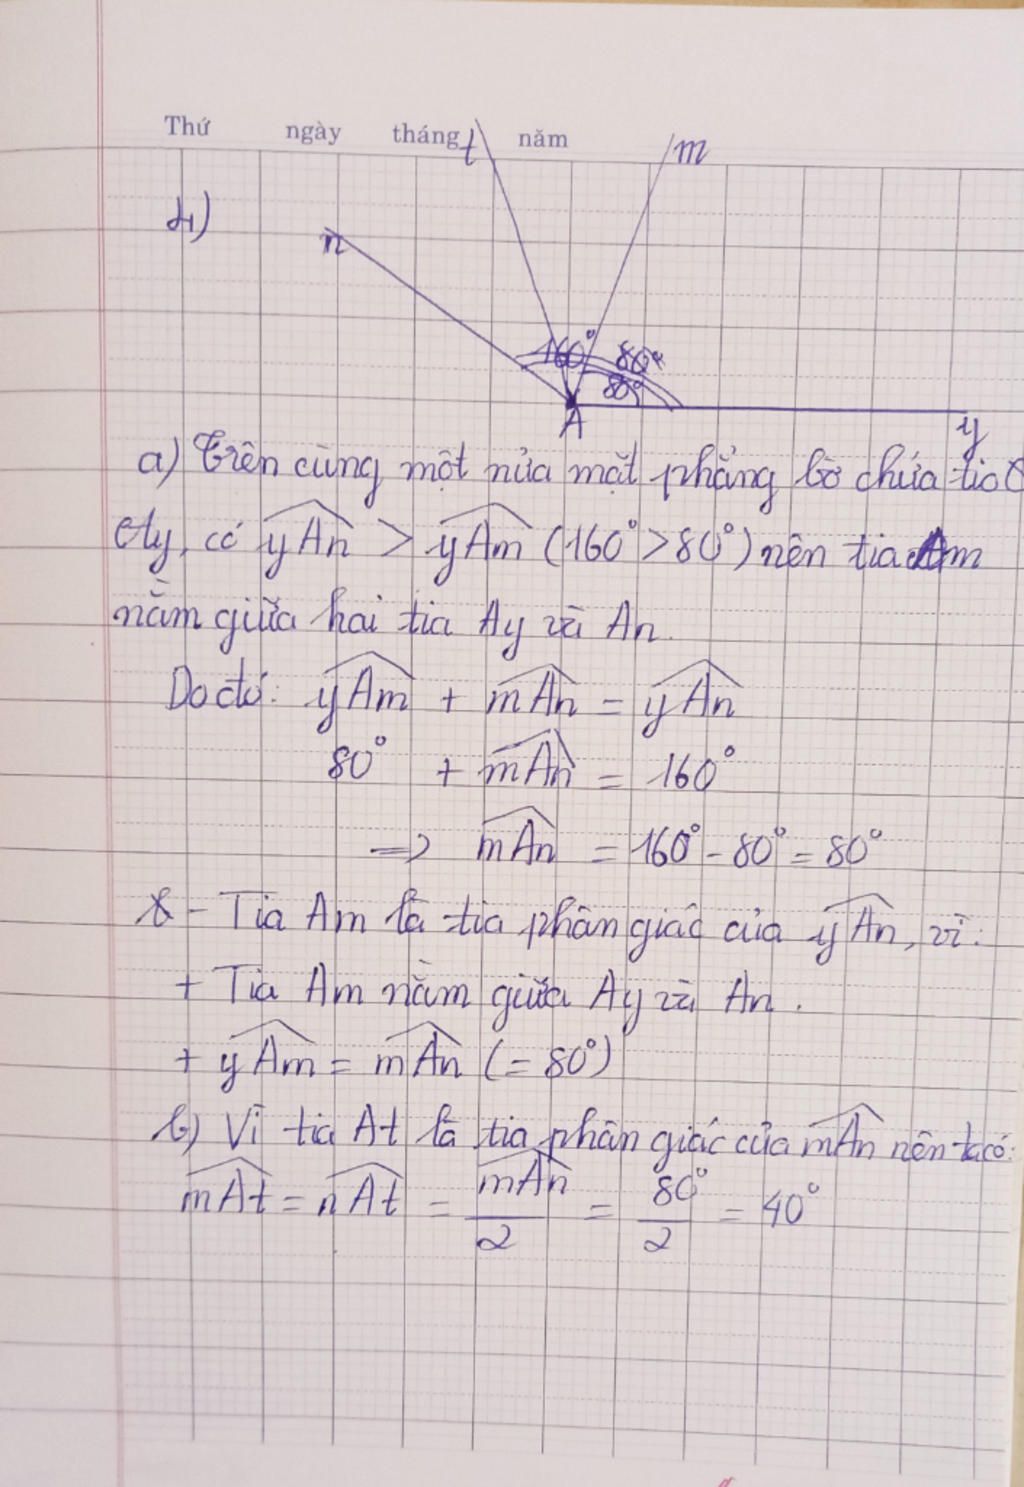 Thứ ngày tháng năm
t m
4)
n
160° 80°
80°
A y
a) Trên cùng một nửa mặt phẳng bờ chứa tia
Ay, có yAn > yAm (160° > 80°) nên tia Am
nằm giữa hai tia Ay và An.
Do đó: yAm + mAn = yAn
80° + mAn = 160°
=> mAn = 160° - 80° = 80°
* - Tia Am là tia phân giác của yAn, vì:
+ Tia Am nằm giữa Ay và An.
+ yAm = mAn (= 80°)
b) Vì tia At là tia phân giác của mAn nên ta có:
mAt = nAt = mAn/2 = 80°/2 = 40°